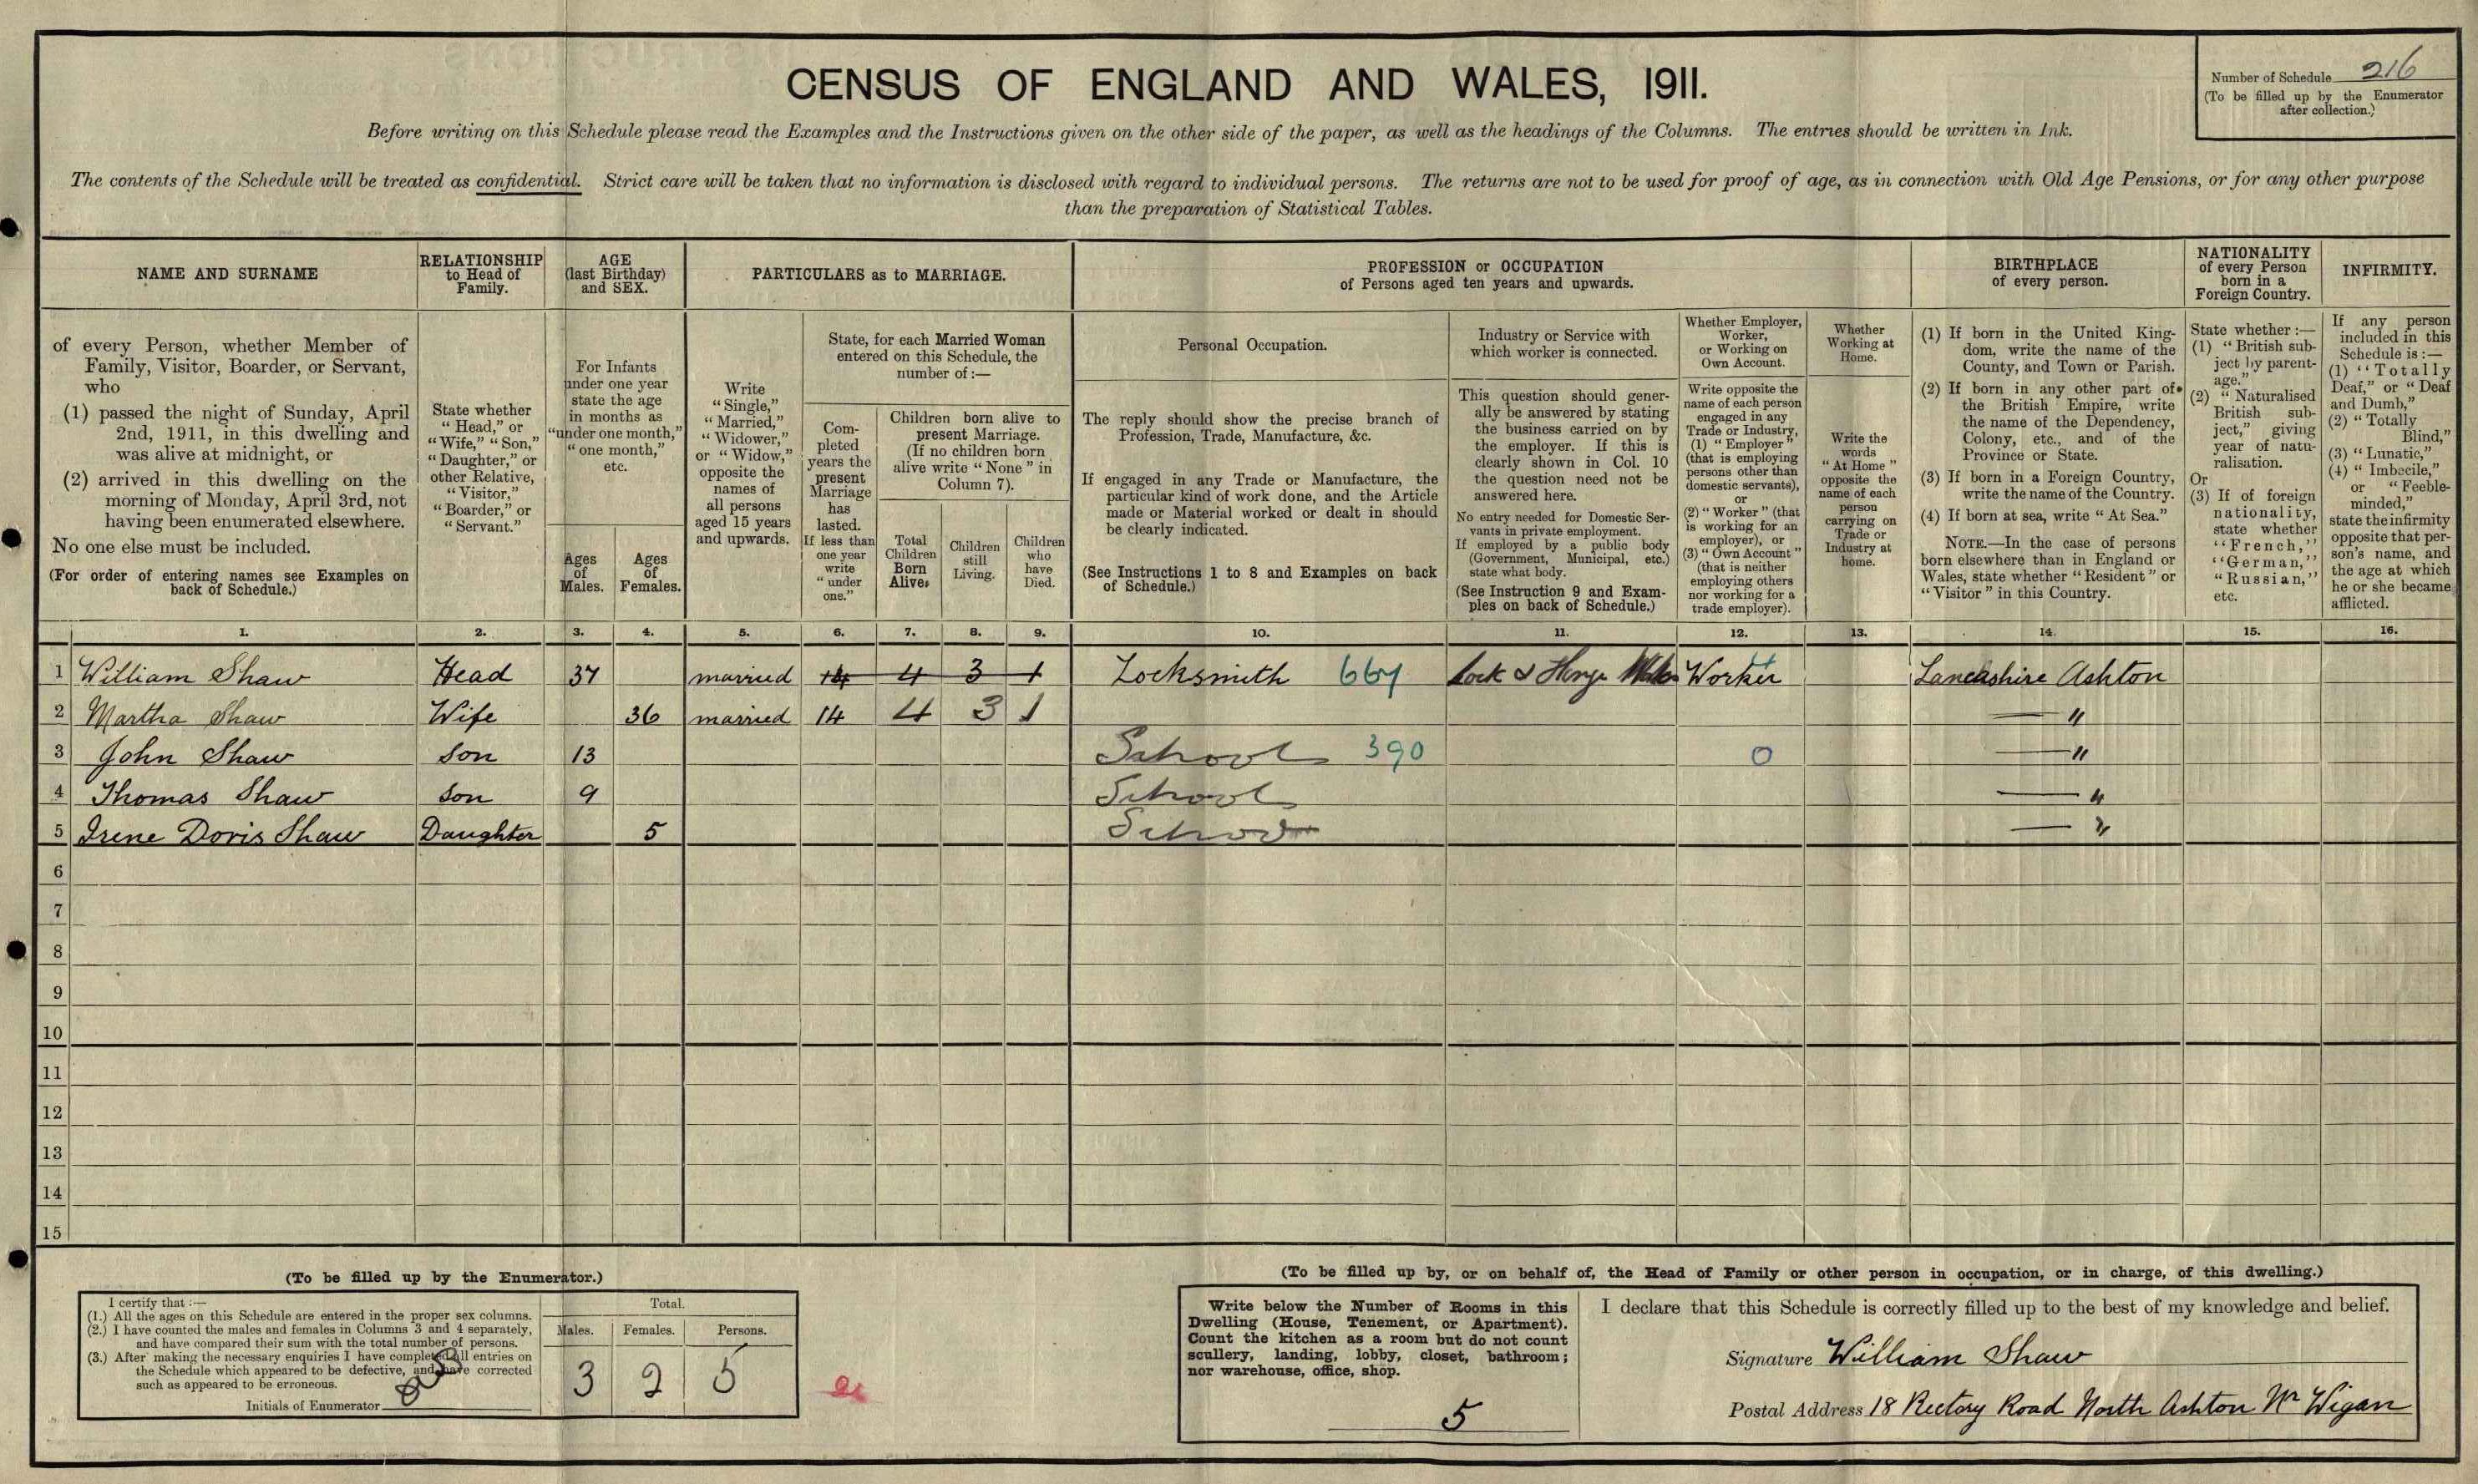 CENSUS OF ENGLAND AND WALES, 1911.
Number of Schedule 216
(To be filled up by the Enumerator
after collection.)
Before writing on this Schedule please read the Examples and the Instructions given on the other side of the paper, as well as the headings of the Columns. The entries should be written in Ink.
The contents of the Schedule will be treated as confidential. Strict care will be taken that no information is disclosed with regard to individual persons. The returns are not to be used for proof of age, as in connection with Old Age Pensions, or for any other purpose
than the preparation of Statistical Tables.
NAME AND SURNAME
of every Person, whether Member of
Family, Visitor, Boarder, or Servant,
who
(1) passed the night of Sunday, April
2nd, 1911, in this dwelling and
was alive at midnight, or
(2) arrived in this dwelling on the
morning of Monday, April 3rd, not
having been enumerated elsewhere.
No one else must be included.
(For order of entering names see Examples on
back of Schedule.)
RELATIONSHIP
to Head of
Family.
State whether
"Head," or
"Wife," "Son,"
"Daughter," or
other Relative,
"Visitor,"
"Boarder," or
"Servant."
AGE
(last Birthday)
and SEX.
For Infants
under one year
state the age
in months as
"under one month,"
"one month,"
etc.
Ages
of
Males.
Ages
of
Females.
PARTICULARS as to MARRIAGE.
Write
"Single,"
"Married,"
"Widower,"
or "Widow,"
opposite the
names of
all persons
aged 15 years
and upwards.
State, for each Married Woman
entered on this Schedule, the
number of:—
Com-
pleted
years the
present
Marriage
has
lasted.
If less than
one year
write
"under
one."
Children born alive to
present Marriage.
(If no children born
alive write "None" in
Column 7).
Total
Children
Born
Alive.
Children
still
Living.
Children
who
have
Died.
PROFESSION or OCCUPATION
of Persons aged ten years and upwards.
Personal Occupation.
The reply should show the precise branch of
Profession, Trade, Manufacture, &c.
If engaged in any Trade or Manufacture, the
particular kind of work done, and the Article
made or Material worked or dealt in should
be clearly indicated.
(See Instructions 1 to 8 and Examples on back
of Schedule.)
Industry or Service with
which worker is connected.
This question should gener-
ally be answered by stating
the business carried on by
the employer. If this is
clearly shown in Col. 10
the question need not be
answered here.
No entry needed for Domestic Ser-
vants in private employment.
If employed by a public body
(Government, Municipal, etc.)
state what body.
(See Instruction 9 and Exam-
ples on back of Schedule.)
Whether Employer,
Worker,
or Working on
Own Account.
Write opposite the
name of each person
engaged in any
Trade or Industry,
(1) "Employer"
(that is employing
persons other than
domestic servants),
or
(2) "Worker" (that
is working for an
employer), or
(3) "Own Account"
(that is neither
employing others
nor working for a
trade employer).
Whether
Working at
Home.
Write the
words
"At Home"
opposite the
name of each
person
carrying on
Trade or
Industry at
home.
BIRTHPLACE
of every person.
(1) If born in the United King-
dom, write the name of the
County, and Town or Parish.
(2) If born in any other part of
the British Empire, write
the name of the Dependency,
Colony, etc., and of the
Province or State.
(3) If born in a Foreign Country,
write the name of the Country.
(4) If born at sea, write "At Sea."
NOTE.—In the case of persons
born elsewhere than in England or
Wales, state whether "Resident" or
"Visitor" in this Country.
NATIONALITY
of every Person
born in a
Foreign Country.
State whether:—
(1) "British sub-
ject by parent-
age."
(2) "Naturalised
British sub-
ject," giving
year of natu-
ralisation.
Or
(3) If of foreign
nationality,
state whether
"French,"
"German,"
"Russian,"
etc.
INFIRMITY.
If any person
included in this
Schedule is:—
(1) "Totally
Deaf," or "Deaf
and Dumb,"
(2) "Totally
Blind,"
(3) "Lunatic,"
(4) "Imbecile,"
or "Feeble-
minded,"
state the infirmity
opposite that per-
son's name, and
the age at which
he or she became
afflicted.
1. 2. 3. 4. 5. 6. 7. 8. 9. 10. 11. 12. 13. 14. 15. 16.
1 William Shaw Head 37 married 14 4 3 1 Locksmith 667 Lock & Hinge Worker Lancashire Ashton
2 Martha Shaw Wife 36 married 14 4 3 1 — "
3 John Shaw Son 13 School 390 0 — "
4 Thomas Shaw Son 9 School — "
5 Irene Doris Shaw Daughter 5 School — "
6
7
8
9
10
11
12
13
14
15
(To be filled up by the Enumerator.)
I certify that:—
(1.) All the ages on this Schedule are entered in the proper sex columns.
(2.) I have counted the males and females in Columns 3 and 4 separately,
and have compared their sum with the total number of persons.
(3.) After making the necessary enquiries I have completed all entries on
the Schedule which appeared to be defective, and have corrected
such as appeared to be erroneous.
Initials of Enumerator
Total.
Males. Females. Persons.
3 2 5
(To be filled up by, or on behalf of, the Head of Family or other person in occupation, or in charge, of this dwelling.)
Write below the Number of Rooms in this
Dwelling (House, Tenement, or Apartment).
Count the kitchen as a room but do not count
scullery, landing, lobby, closet, bathroom;
nor warehouse, office, shop.
5
I declare that this Schedule is correctly filled up to the best of my knowledge and belief.
Signature William Shaw
Postal Address 18 Rectory Road North Ashton Nr Wigan